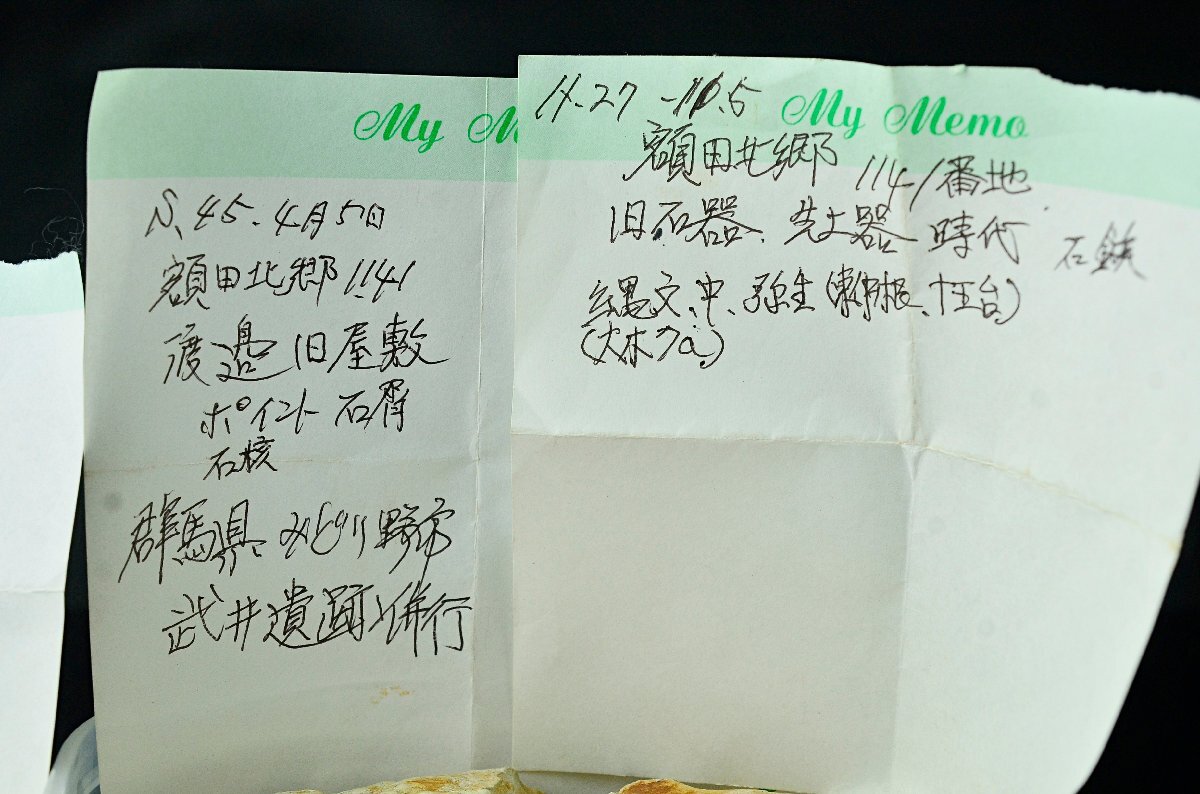 My M
S.45.4月5日
額田北郷1141
渡邉旧屋敷
ポイント 石屑
石核
群馬県 みどり野市
武井遺跡と併行
My Memo
11.27 -11.5
額田北郷 1141番地
旧石器、先土器 時代 石鏃
縄文、中、弥生(東中根、十王台)
(大木7a)